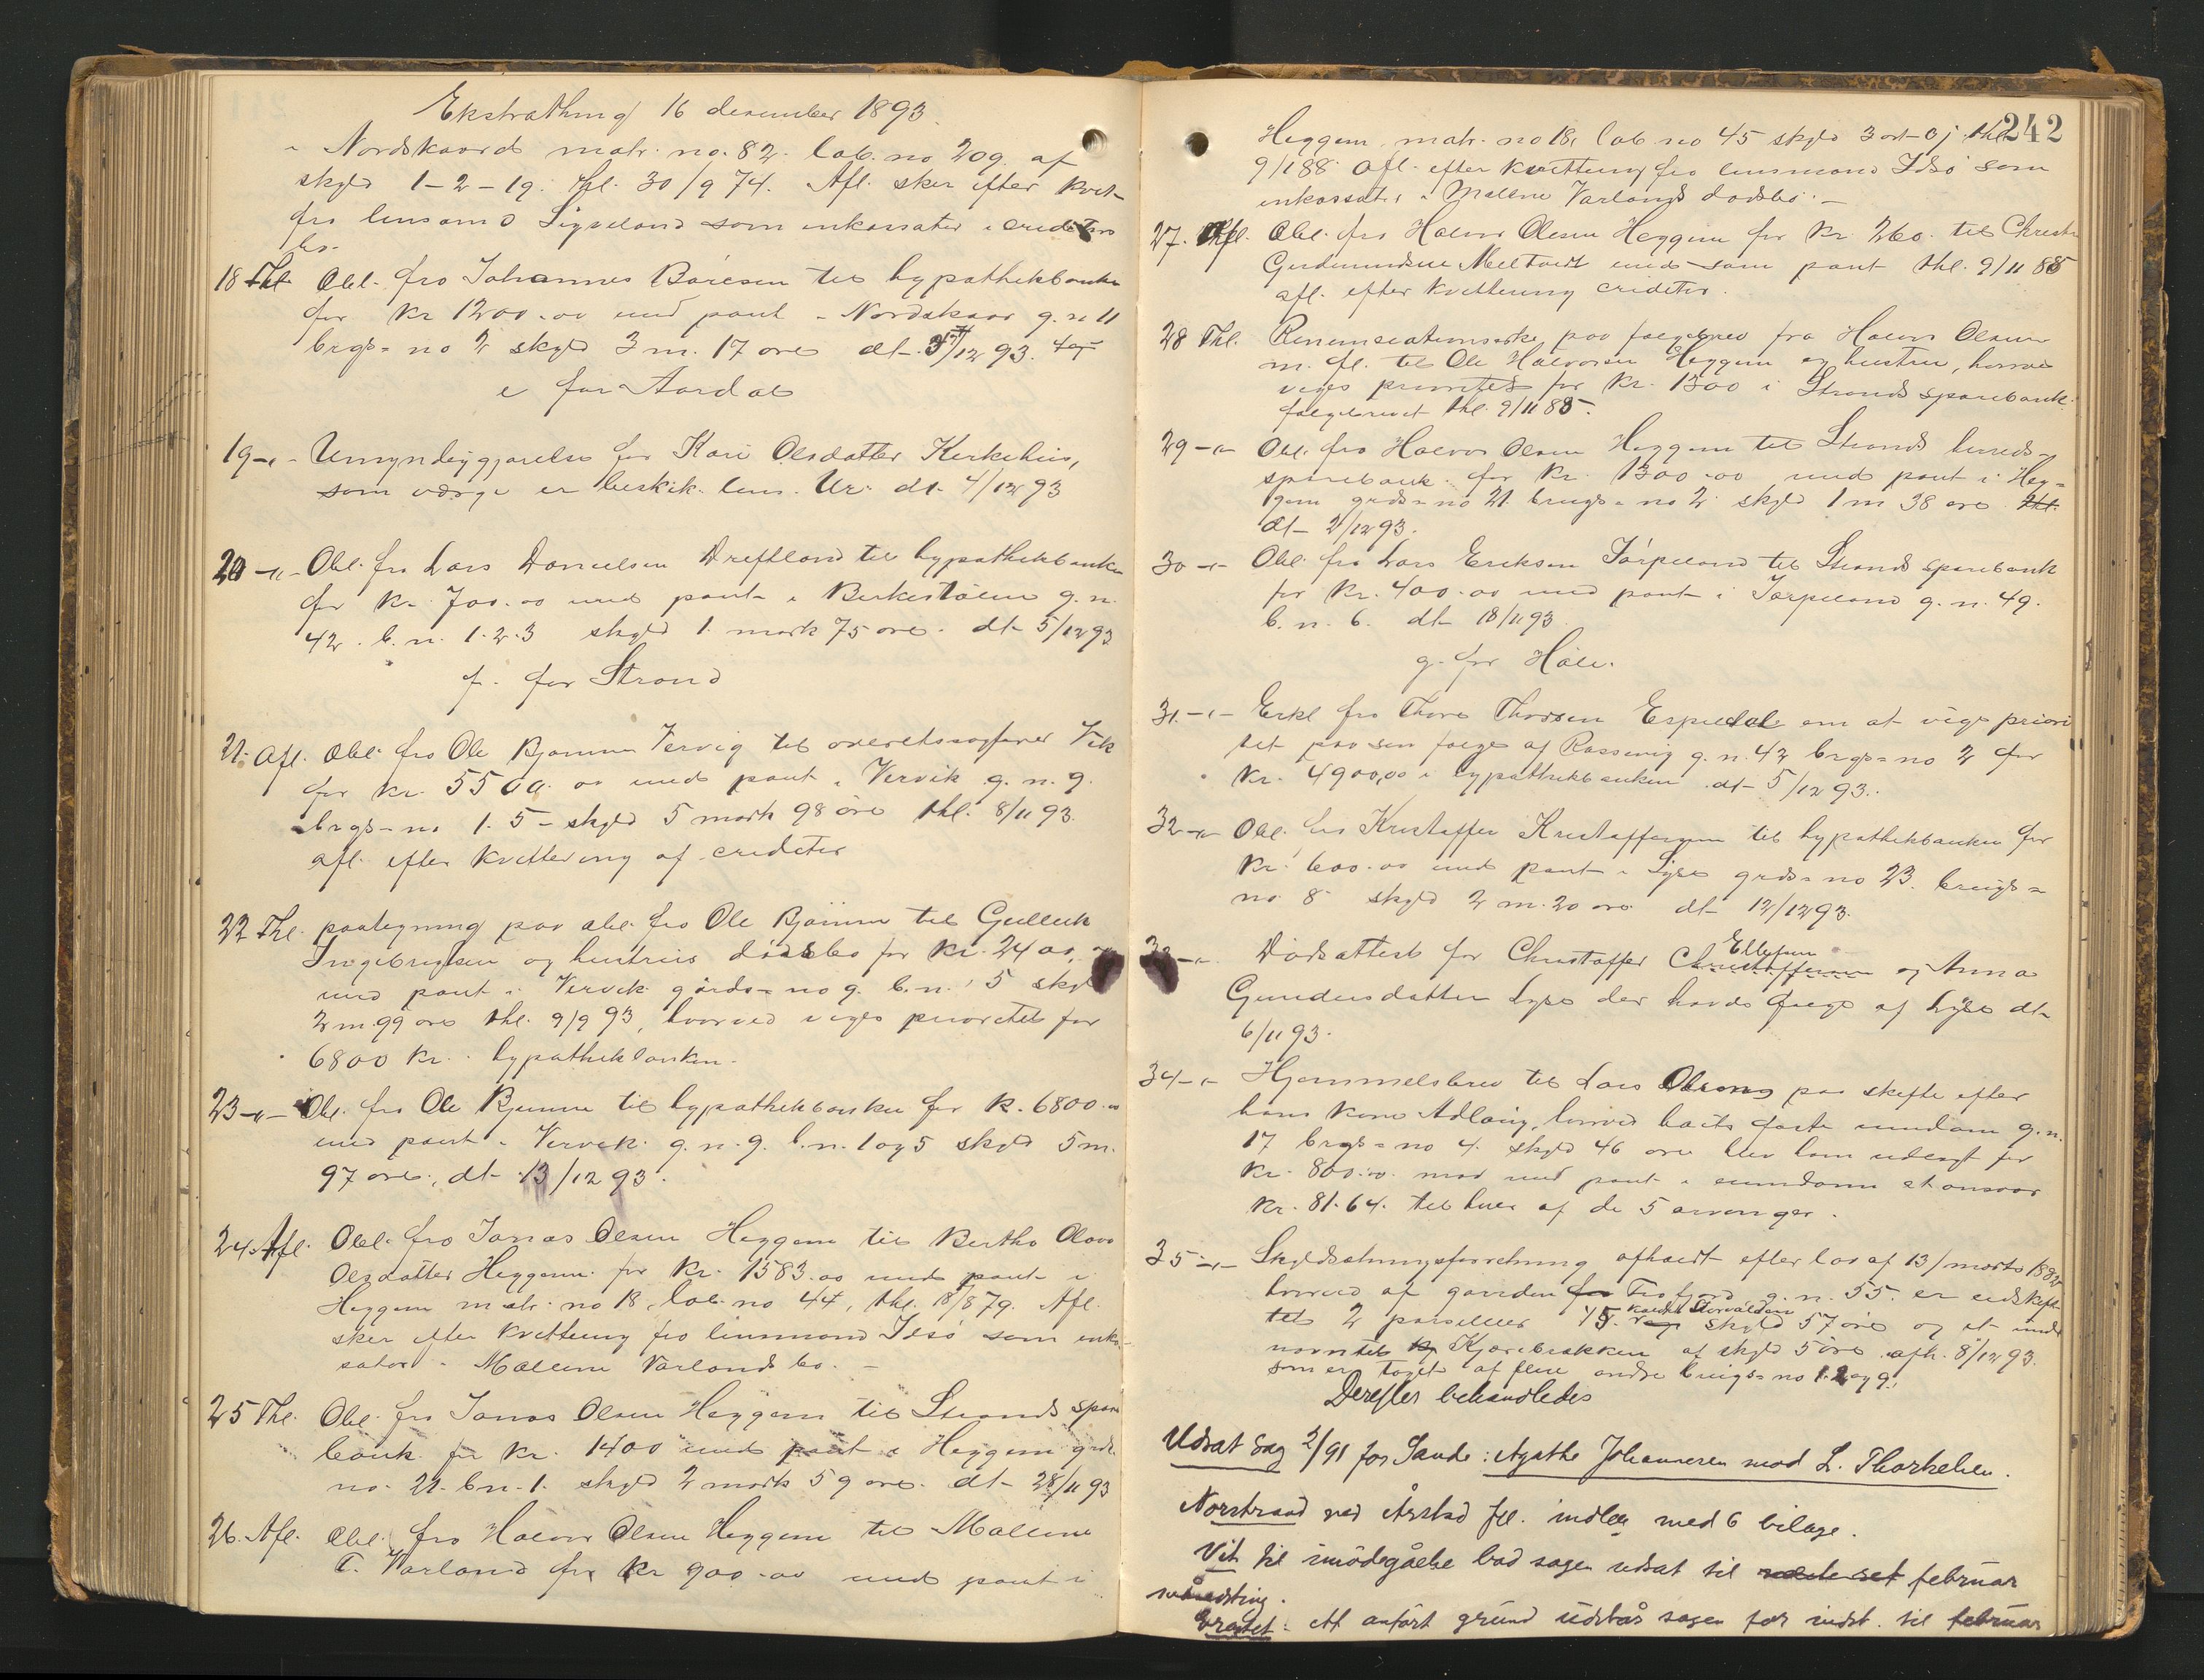 Ekstrathing 16 desember 1893.
i Nordskaard matr. no. 82. lab. no 209. af
skyld 1-2-19. thl. 30/9 74. Afl. sker efter kvit-
fra lensmand Sigveland som inkassator i creditors
bo.
18 Thl. Obl. fra Johannes Baresen til hypothekbanken
for Kr 1200.00 med pant i Nordskaar g. n 11
brgs= no 2 skyld 3 m. 17 øre dt. /12 93.
e for Aardal
19 -"- Umyndiggjørelse for Kari Olsdatter Kirkehus,
som værge er beskik. lens. Ur. dt. 4/12 93
20 -"- Obl. fra Lars Danielsen Dreftland til hypothekbanken
for Kr. 700.00 med pant i Birkestølen g. n.
42. b. n. 1.2.3 skyld 1. mark 75 øre. dt 5/12 93
f. for Strand
21. Afl. Obl. fra Ole Bjømme Vervig til overretssagfører Vik
for kr. 5500.00 med pant i Vervik g. n. 9.
brgs- no 1. 5 - skyld 5 mark 98 øre thl. 8/11 93.
afl. efter kvittering af creditor
22 Thl. paategning paa obl. fra Ole Bjømme til Gulleik
Ingebrigtsen og hustrus dødsbo for Kr. 2400,
med pant i Vervik gårds= no 9. b. n. 5 skyld
2 m 99 øre thl. 9/9 93, hvorved viges prioritet for
6800 Kr. i hypothekbanken.
23 -"- Obl. fra Ole Bjømme til hypothekbanken for K. 6800.00
med pant i Vervik g. n. 9. b. n. 1 og 5 skyld 5 m.
97 øre, dt 13/12 93.
24. Afl. Obl. fra Jonas Olsen Heggem til Bertha Olava
Olsdatter Heggem for Kr. 1583.00 med pant i
Heggem matr. no 18, lab. no 44, thl. 18/8 79. Afl.
sker efter kvittering fra lensmand Idsø som inkas-
sator i Mallene Varlands bo. -
25 Thl. Obl. fra Jonas Olsen Heggem til Strands spare
bank for Kr. 1400 med pant i Heggem grds.
no. 21. b n. 1. skyld 2 mark 59 øre. dt 28/11 93
26. Afl. Obl. fra Halvor Olsen Heggem til Mallene
T. Varland for Kr 900.00 med pant i
242
Heggem matr. no 18, lab no 45 skyld 3 ort - 0 j thl.
9/1 88 Afl. efter kvittering fra lensmand Idsø som
inkassator i Mallene Varlands dødsbo. -
27. Afl. Obl. fra Halvor Olsen Heggem for Kr 260. til Christen
Gudmundsen Meltveit med som pant thl. 9/11 85
afl. efter kvittering creditor.
28 Thl. Renunciationserkl. paa folgebrev fra Halvor Olsen
m. fl. til Ole Halvorsen Heggem og hustru, hvorved
viges prioritet for Kr. 1300 i Strands sparebank.
folgebrevet thl. 9/11 85.
29 -"- Obl. fra Halvor Olsen Heggem til Strands herreds-
sparebank for Kr. 1300.00 med pant i Heg=
gem grds= no 21. brugs= no 2 skyld 1 m 38 øre
dt 2/12 93.
30 -"- Obl. fra Lars Eriksen Tørpeland til Strands sparebank
for Kr. 400.00 med pant i Jørpeland g. n. 49.
b. n. 6. dt 18/11 93
g. for Høle.
31. -"- Erkl fra Thore Thorsen Espedal om at vige priori
tet paa sin folge af Rossavig g. n. 42 brgs= no 2 for
Kr. 4900,00 i hypothekbanken dt 5/12 93.
32 -"- Obl. fra Kristoffer Kristoffersen til hypothekbanken for
Kr. 600.00 med pant i Lyse grds= no 23. brugs=
no 8 skyld 2 m. 20 øre dt 12/12 93.
33 -"- Dødsattest for Christoffer Christoffersen Ellefsen og Anna
Gundersdatter Lyse der havde folge af Lyse dt
6/11 93.
34 -"- Hjemmelsbrev til Lars paa skifte efter
hans kone Adlaug, hvorved boets faste eiendom g. n.
17 brgs= no 4. skyld 46 øre blev ham udlagt for
Kr. 800.00. mod med pant i eiendommen at ansvar
Kr. 81.64. til hver af de 5 arvinger.
35 -"- Skyldsætningsforretning afholdt efter lov af 13/ marts 1882
hvorved af gaarden for Frafjord g. n. 55. er udskift
til 2 parseller 15. kaldet Storvålden skyld 57 øre og et unde
navn til Kjærebrækken af skyld 5 øre afh. 8/12 93.
som er taget af flere andre brugs= no 1. 2 og 9.
Derefter behandledes
Udsat Sag 2/91 for Sande: Agathe Johannesen mod L. Thorkelsen.
Norstrand ved Årstad fl. indlæg med 6 bilage.
Vik til imødegåelse bad sagen udsat til februar
månedsting.
Grastet: Af anført grund udstår sagen for indst. til februar